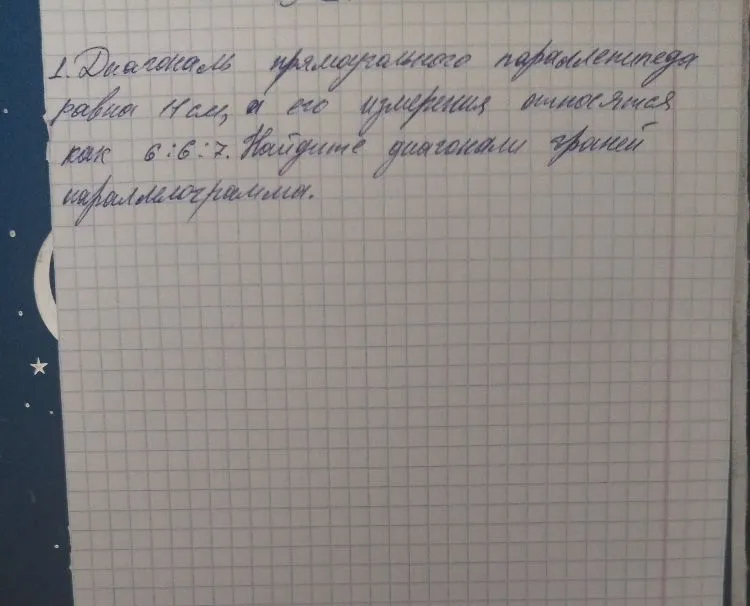 1. Диагональ прямоугольного параллепипеда
равна 11 см, а его измерения относятся
как 6:6:7. Найдите диагонали граней
параллелограмма.